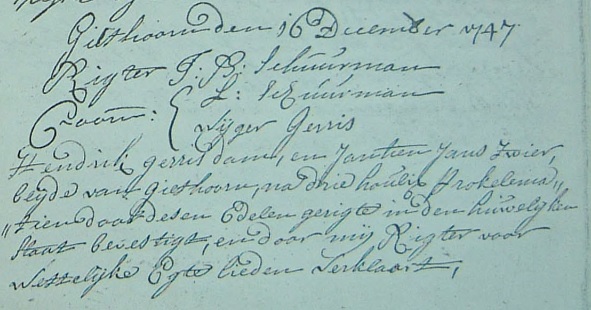 Giethoorn den 16 December 1747
Rigter J: B: Schuurman
Coorn: { L: Schuurman
Wijger Gerris
Hendrik gerris dam, en Jantien Jans Zwier,
beijde van giethoorn, na drie houlix Prokelema„
„tien door desen Edelen gerigte in den huwelijken
staat bevestigt, en door mij Rigter voor
wettelijke Egte lieden verklaart,